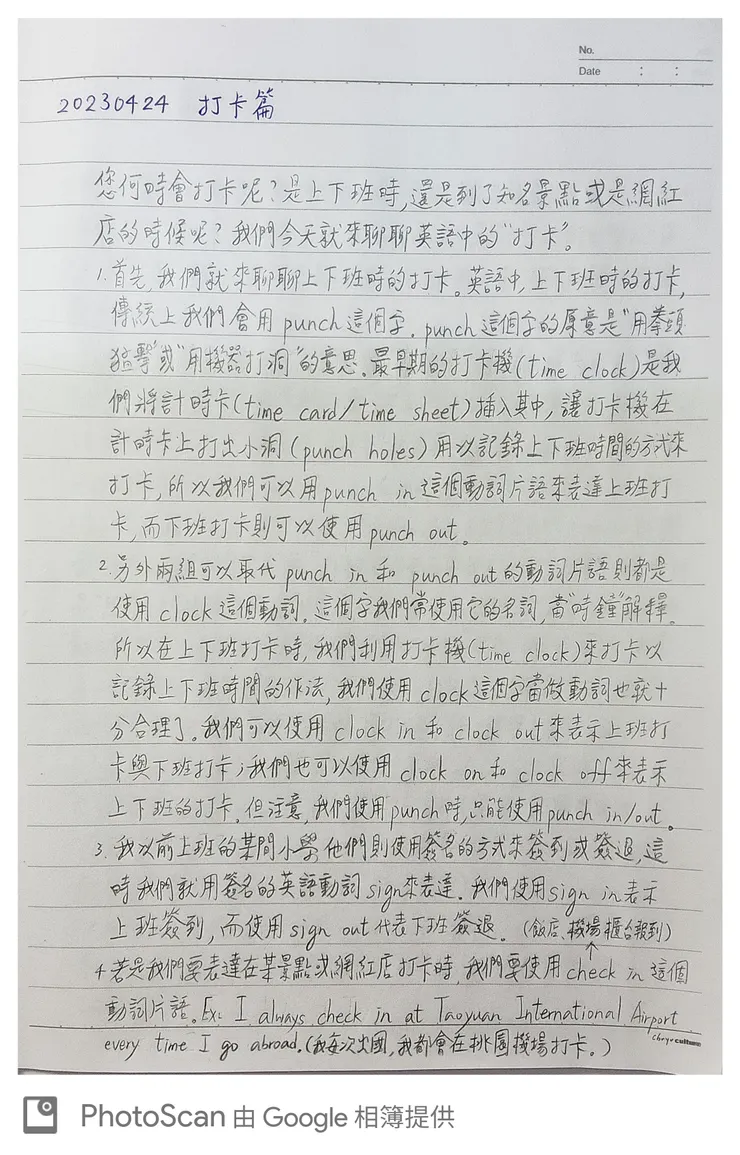 No.
Date : :
20230424 打卡篇
您何時會打卡呢？是上下班時，還是到了知名景點或是網紅
店的時候呢？我們今天就來聊聊英語中的"打卡"。
1. 首先，我們就來聊聊上下班時的打卡。英語中，上下班時的打卡，
傳統上我們會用 punch 這個字。punch 這個字的原意是"用拳頭
猛擊"或"用機器打洞"的意思。最早期的打卡機(time clock)是我
們將計時卡(time card/time sheet)插入其中，讓打卡機在
計時卡上打出小洞(punch holes)用以記錄上下班時間的方式來
打卡，所以我們可以用punch in 這個動詞片語來表達上班打
卡，而下班打卡則可以使用 punch out。
2. 另外兩組可以取代 punch in 和 punch out的動詞片語則都是
使用 clock 這個動詞。這個字我們常使用它的名詞，當"時鐘"解釋。
所以在上下班打卡時，我們利用打卡機(time clock)來打卡以
記錄上下班時間的作法，我們使用 clock 這個字當做動詞也就十
分合理了。我們可以使用 clock in 和 clock out 來表示上班打
卡與下班打卡；我們也可以使用 clock on 和 clock off 來表示
上下班的打卡。但注意，我們使用punch時，只能使用punch in/out。
3. 我以前上班的某間小學他們則使用簽名的方式來簽到或簽退，這
時我們就用簽名的英語動詞 sign來表達。我們使用sign in表示
上班簽到，而使用 sign out 代表下班簽退。(飯店、機場櫃台報到)
4 若是我們要表達在某景點或網紅店打卡時，我們要使用 check in 這個
動詞片語。Ex: I always check in at Taoyuan International Airport
every time I go abroad.(我每次出國，我都會在桃園機場打卡。)
PhotoScan 由 Google 相簿提供